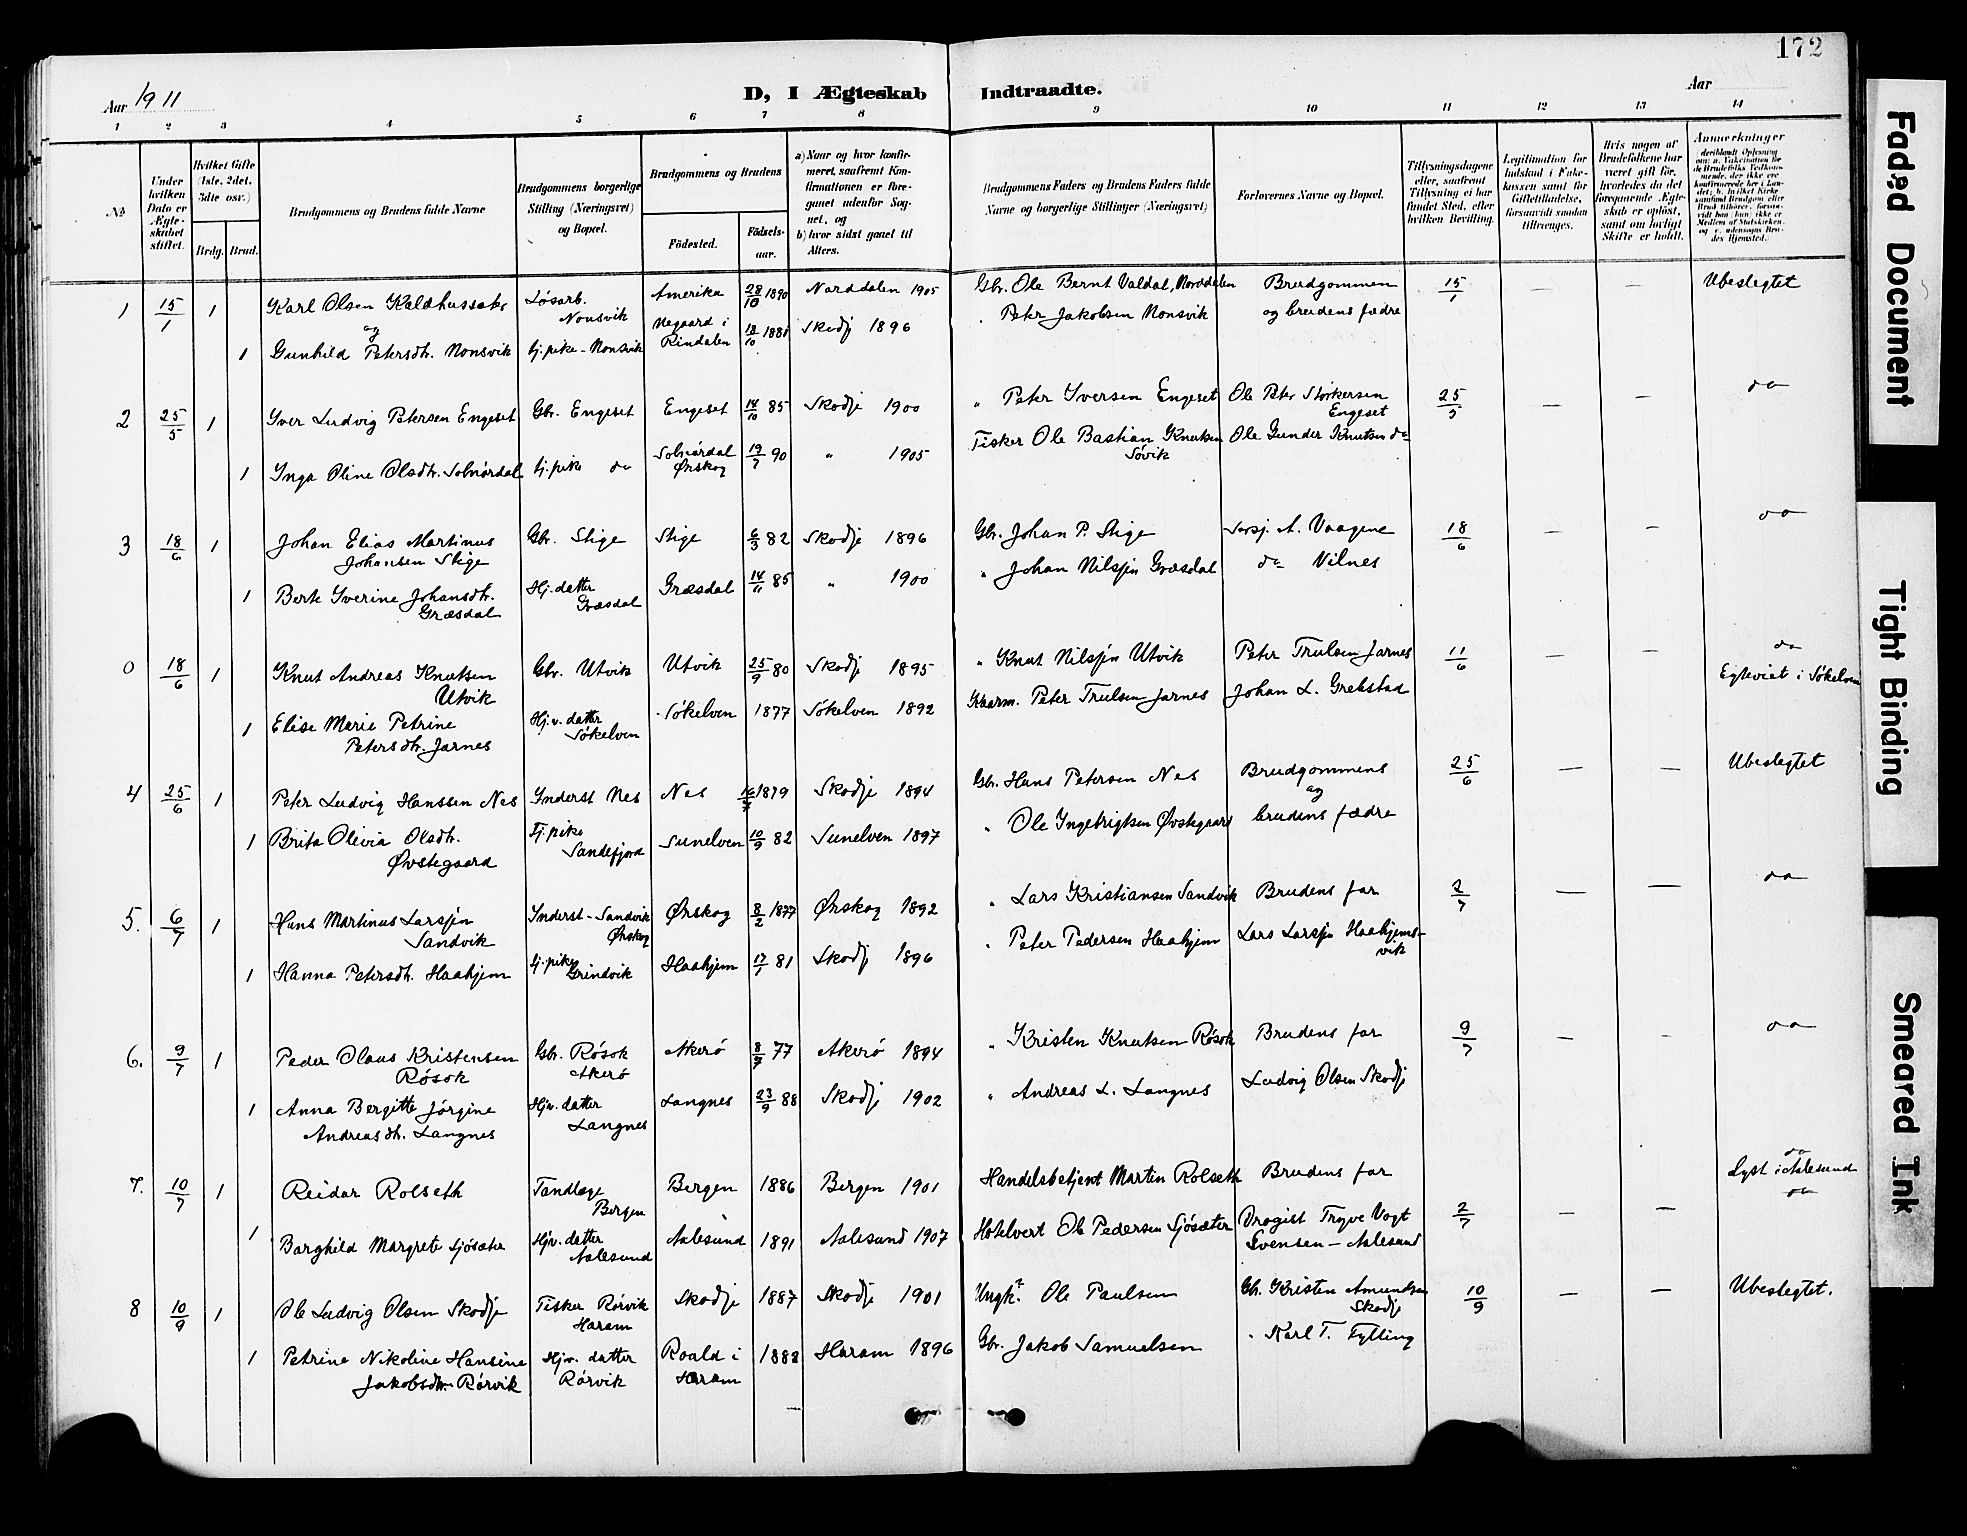 172
Aar 1911
D, I Ægteskab Indtraadte.
Aar
1 2 3 4 5 6 7 8 9 10 11 12 13 14
No
Under hvilken Dato er Ægteskabet stiftet.
Hvilket Gifte (1ste, 2det, 3die osv.)
Brdg. Brud.
Brudgommens og Brudens fulde Navne
Brudgommens borgerlige Stilling (Næringsvei) og Bopæl.
Brudgommens og Brudens
Födested.
Födselsaar.
a) Naar og hvor konfirmeret, saafremt Konfirmationen er foregaaet udenfor Sognet, og
b) hvor sidst gaaet til Alters.
Brudgommens Faders og Brudens Faders fulde Navne og borgerlige Stillinger (Næringsvei)
Forlovernes Navne og Bopæl.
Tillysningsdagene eller, saafremt Tillysning ei har fundet Sted, efter hvilken Bevilling.
Legitimation for Indskud i Enkekassen samt for Giftetilladelse, forsaavidt saadan tiltrænges.
Hvis nogen af Brudefolkene har været gift før, hvorledes da det foregaaende Ægteskab er opløst, samt om lovligt Skifte er holdt.
Anmærkninger
1 15/1 1 Karl Olsen Kaldhussæter Løsarb. Nonsvik Amerika 28/10 1890 Norddalen 1905 Gbr. Ole Bernt Valdal, Norddalen Brudgommen 15/1 — — Ubeslegtet
og
1 Gunhild Petersdtr. Nonsvik tj.pike - Nonsvik Negaard i Rindalen 18/10 1881 Skodje 1896 " Peter Jakobsen Nonsvik og brudens fædre
2 25/5 1 Yver Ludvig Petersen Engeset Gbr. Engeset Engeset 14/10 85 Skodje 1900 " Peter Yversen Engeset Ole Peter Storkersen Engeset 25/5 — — do
1 Inga Oline Olsdtr. Solnørdal tj.pike do Solnørdal Ørskog 19/7 90 " 1905 Fisker Ole Bastian Knutsen Søvik Ole Gunder Knutsen do
3 18/6 1 Johan Elias Martinus Johansen Stige Gbr. Stige Stige 6/3 82 Skodje 1896 Gbr. Johan P. Stige A. Vaagene 18/6 — — do
1 Berte Yverine Johansdtr. Græsdal Hj.datter Græsdal Græsdal 14/11 85 " 1900 " Johan Nilssen Græsdal do Vilnes
0 18/6 1 Knut Andreas Knutsen Utvik Gbr. Utvik Utvik 25/9 80 Skodje 1895 " Knut Nilssen Utvik Peter Trulsen Jarnes 11/6 — — do
Egteviet i Søkelven
1 Elise Marie Petrine Petersdtr. Jarnes Hjv. datter Søkelven Søkelven 1877 Søkelven 1892 Kaarm. Peter Trulsen Jarnes Johan L. Grebstad
4 25/6 1 Peter Ludvig Hanssen Nes Inderst Nes Nes 1879 Skodje 1894 Gbr. Hans Petersen Nes Brudgommens og 25/6 — — Ubeslegtet
1 Brita Olivia Olsdtr. Øvstegaard Tj.pike Sandefjord Sunelven 10/9 82 Sunelven 1897 " Ole Ingebrigtsen Øvstegaard brudens fædre
5. 6/7 1 Hans Martinus Larssen Sandvik Inderst - Sandvik Ørskog Ørskog 8/2 1877 Ørskog 1892 " Lars Kristiansen Sandvik Brudens far 2/7 — — do
1 Hanna Petersdtr. Haahjem tj.pike Grindvik Haahjem 17/1 81 Skodje 1896 " Peter Pedersen Haahjem Lars Larssen Haahjemsvik
6. 9/7 1 Peder Olaus Kristensen Røsok Gbr. Røsok Akerø Akerø 8/7 77 Akerø 1894 " Kristen Knutsen Røsok Brudens far 9/7 — — do
1 Anna Bergitte Jørgine Andreasdtr. Langnes Hjv. datter Langnes Langnes 23/9 88 Skodje 1902 " Andreas L. Langnes Ludvig Olsen Skodje
7. 10/7 1 Reidar Rolseth Tandlæge Bergen Bergen 1886 Bergen 1901 Handelsbetjent Martin Rolseth Brudens far 2/7 — — do
Lyst i Aalesund
do
1 Borghild Margrete Sjøsæter Hjv. datter Aalesund Aalesund 1891 Aalesund 1907 Hotelvert Ole Pedersen Sjøsæter Drogist Trygve Vogt Svensen - Aalesund
8 10/9 1 Ole Ludvig Olsen Skodje Fisker Rørvik Haram Skodje 1887 Skodje 1901 Ungk. Ole Paulsen Gbr. Kristen Amundsen Skodje 10/9 — — Ubeslegtet.
1 Petrine Nikoline Hansine Jakobsdtr. Rørvik Hjv. datter Rørvik Roald i Haram 1882 Haram 1896 Gbr. Jakob Samuelsen " Karl T. Fylling
Faded Document
Tight Binding
Smeared Ink